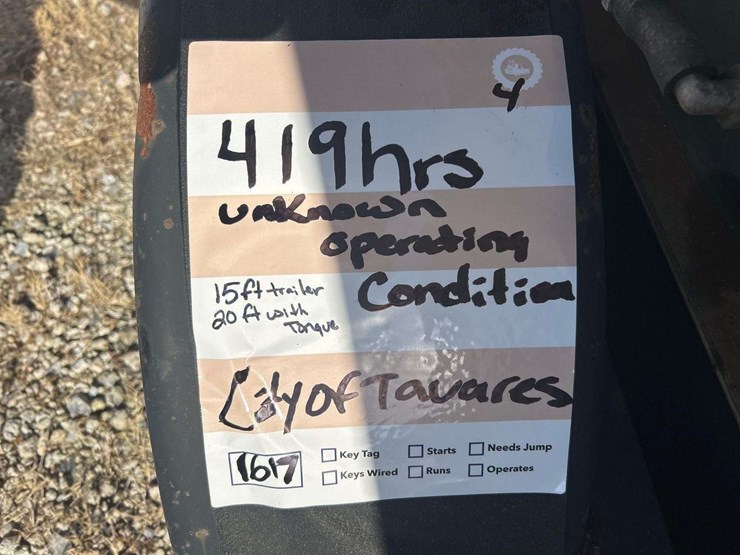 4
419hrs
unknown
operating
Condition
15ft trailer
20 ft with
Tongue
City of Tavares
1617
Key Tag
Starts
Needs Jump
Keys Wired
Runs
Operates